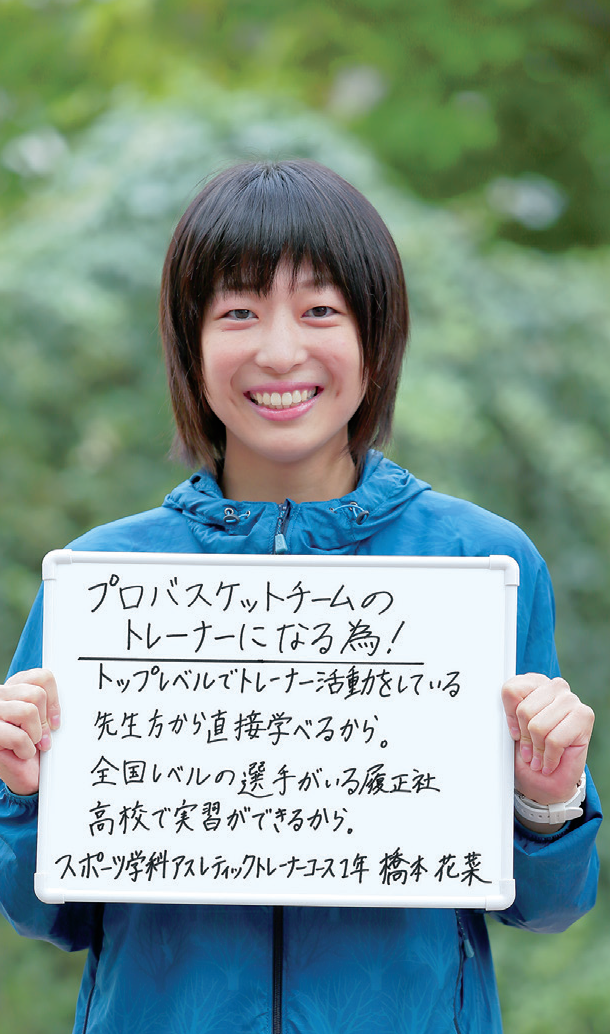 プロバスケットチームの
トレーナーになる為!
トップレベルでトレーナー活動をしている
先生方から直接学べるから。
全国レベルの選手がいる履正社
高校で実習ができるから。
スポーツ学科アスレティックトレーナーコース1年 橋本 花菜